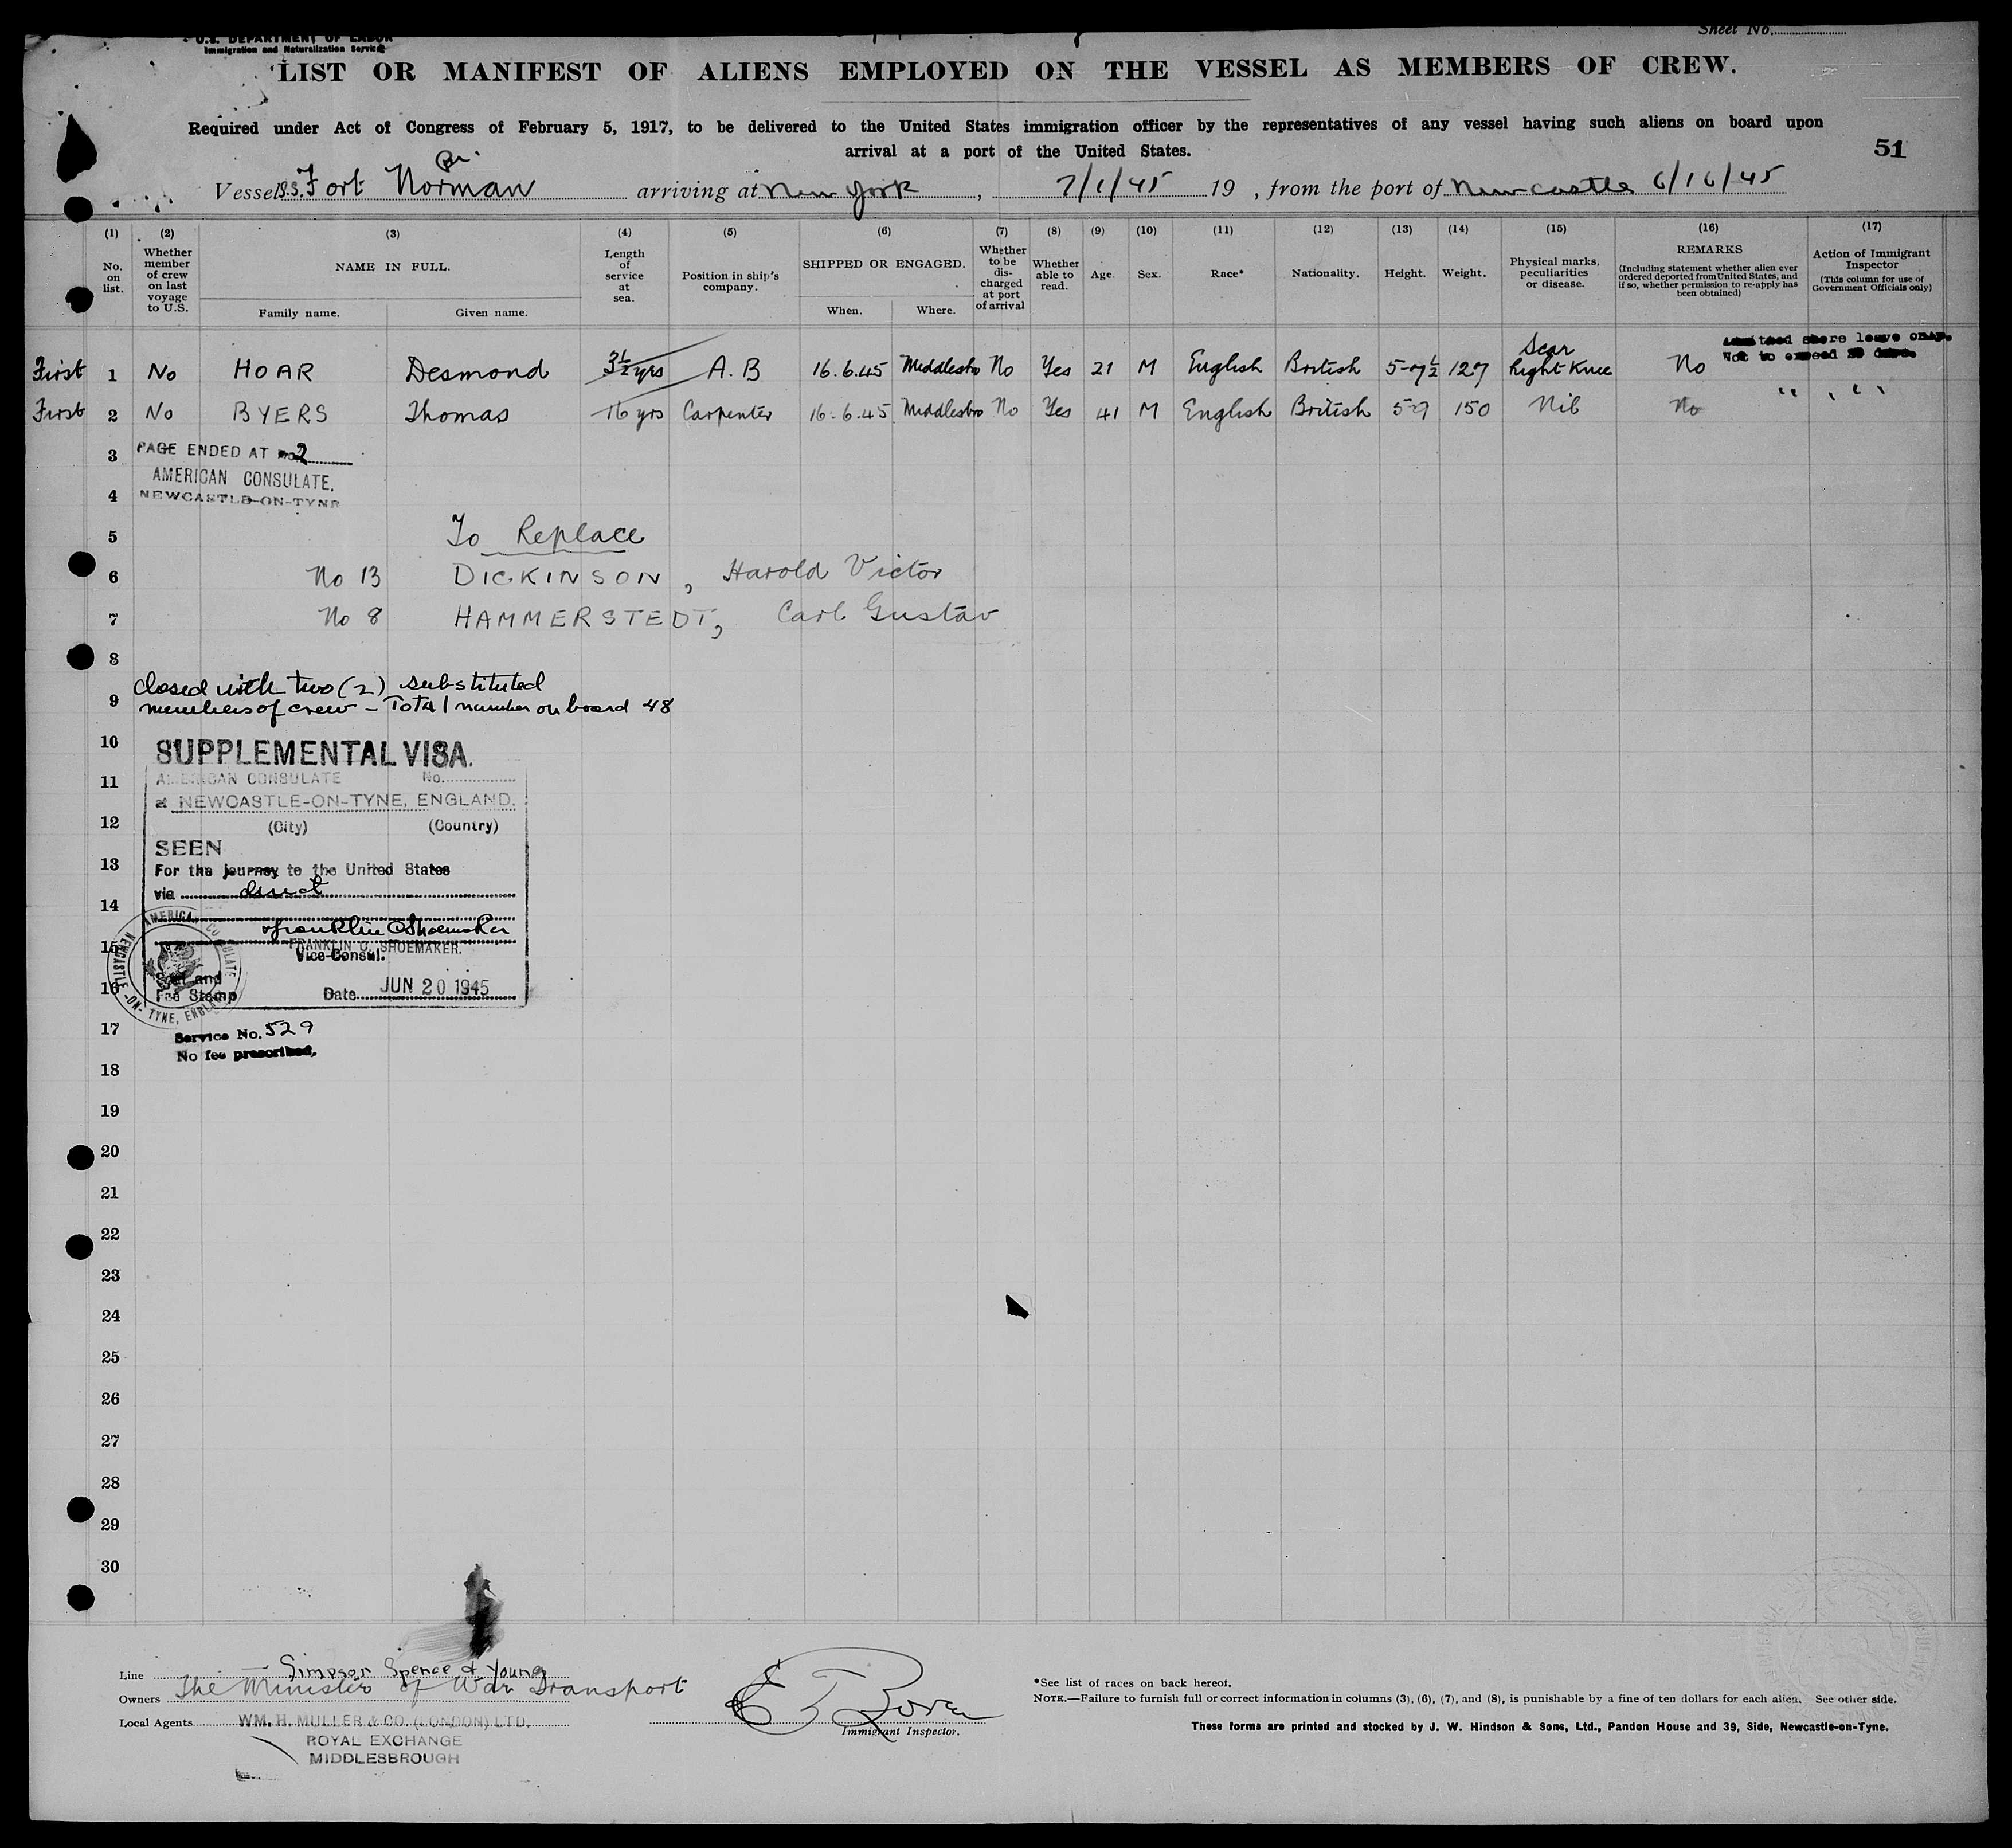 U.S. DEPARTMENT OF LABOR
Immigration and Naturalization Service
Sheet No.
LIST OR MANIFEST OF ALIENS EMPLOYED ON THE VESSEL AS MEMBERS OF CREW.
Required under Act of Congress of February 5, 1917, to be delivered to the United States immigration officer by the representatives of any vessel having such aliens on board upon
arrival at a port of the United States.
51
Br.
Vessel S.S. Fort Norman arriving at New York, 7/1/45 19 , from the port of Newcastle 6/16/45
(1) No. on list.
(2) Whether member of crew on last voyage to U.S.
(3) NAME IN FULL. Family name. Given name.
(4) Length of service at sea.
(5) Position in ship's company.
(6) SHIPPED OR ENGAGED. When. Where.
(7) Whether to be discharged at port of arrival
(8) Whether able to read.
(9) Age.
(10) Sex.
(11) Race*
(12) Nationality.
(13) Height.
(14) Weight.
(15) Physical marks, peculiarities or disease.
(16) REMARKS (Including statement whether alien ever ordered deported from United States, and if so, whether permission to re-apply has been obtained)
(17) Action of Immigrant Inspector (This column for use of Government Officials only)
Admitted shore leave only.
Not to exceed days.
First 1 No HOAR Desmond 3½ yrs A.B 16.6.45 Middlesbro No Yes 21 M English British 5-7½ 127 Scar Right Knee No
First 2 No BYERS Thomas 16 yrs Carpenter 16.6.45 Middlesbro No Yes 41 M English British 5-9 150 Nil No " " "
3 PAGE ENDED AT No 2
AMERICAN CONSULATE,
4 NEWCASTLE-ON-TYNE
5 To Replace
6 No 13 DICKINSON, Harold Victor
7 No 8 HAMMERSTEDT, Carl Gustav
8
closed with two (2) substituted
9 members of crew - Total number on board 48
10 SUPPLEMENTAL VISA.
11 AMERICAN CONSULATE No.
at NEWCASTLE-ON-TYNE, ENGLAND.
12 (City) (Country)
SEEN
13 For the journey to the United States
via direct
14
Franklin C Shoemaker
15 FRANKLIN C. SHOEMAKER.
Vice-Consul.
AMERICAN CONSULATE
NEWCASTLE-ON-TYNE, ENGLAND
Seal and
16 Fee Stamp Date JUN 20 1945
17 Service No. 529
No fee prescribed.
18
19
20
21
22
23
24
25
26
27
28
29
30
Line Simpson Spence & Young
Owners The Minister of War Transport
Local Agents WM. H. MULLER & CO. (LONDON) LTD.
ROYAL EXCHANGE
MIDDLESBROUGH
Immigrant Inspector.
*See list of races on back hereof.
NOTE.—Failure to furnish full or correct information in columns (3), (6), (7), and (8), is punishable by a fine of ten dollars for each alien. See other side.
These forms are printed and stocked by J. W. Hindson & Sons, Ltd., Pandon House and 39, Side, Newcastle-on-Tyne.